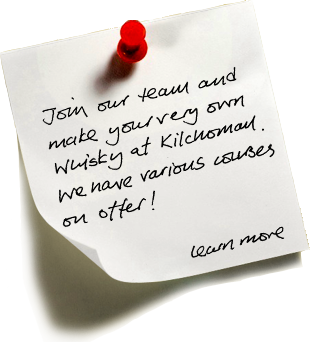 Join our team and
make your very own
Whisky at Kilchoman.
We have various courses
on offer!
learn more